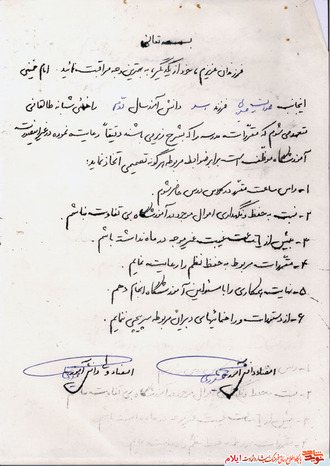 بسمه تعالی
فرزندان عزیزم، خود از یکدیگر، به بهترین وجه مراقبت نمائید. امام خمینی
اینجانب فرزند دانش آموز سال راهنمائی شبانه طالقانی
متعهد می شوم که مقررات مدرسه را که بشرح زیر می باشد دقیقاً رعایت نموده و در غیر اینصورت
آموزشگاه موظف است برابر ضوابط مربوطه هرگونه تصمیمی اتخاذ نماید:
۱- راس ساعت مقرر در کلاس درس حاضر شوم.
۲- نسبت به حفظ و نگهداری اموال موجود در آموزشگاه بی تفاوت نباشم.
۳- بیش از ساعت غیبت غیر موجه در ماه نداشته باشم.
۴- مقررات مربوط به حفظ نظم را رعایت نمایم.
۵- نهایت همکاری را با مسئولین آموزشگاه انجام دهم.
۶- از دستورات و راهنمائیهای دبیران مربوطه سرپیچی ننمایم.
امضاء دانش آموز امضاء ولی دانش آموز
ایلام